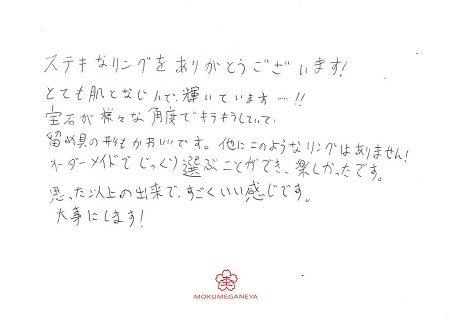 ステキなリングをありがとうございます!
とても肌となじんで、輝いています……!!
宝石が様々な角度でキラキラしていて
留め具の形もかわいいです。他にこのようなリングはありません!
オーダーメイドでじっくり選ぶことができ、楽しかったです。
思った以上の出来で、すごくいい感じです。
大事にします!
MOKUMEGANEYA